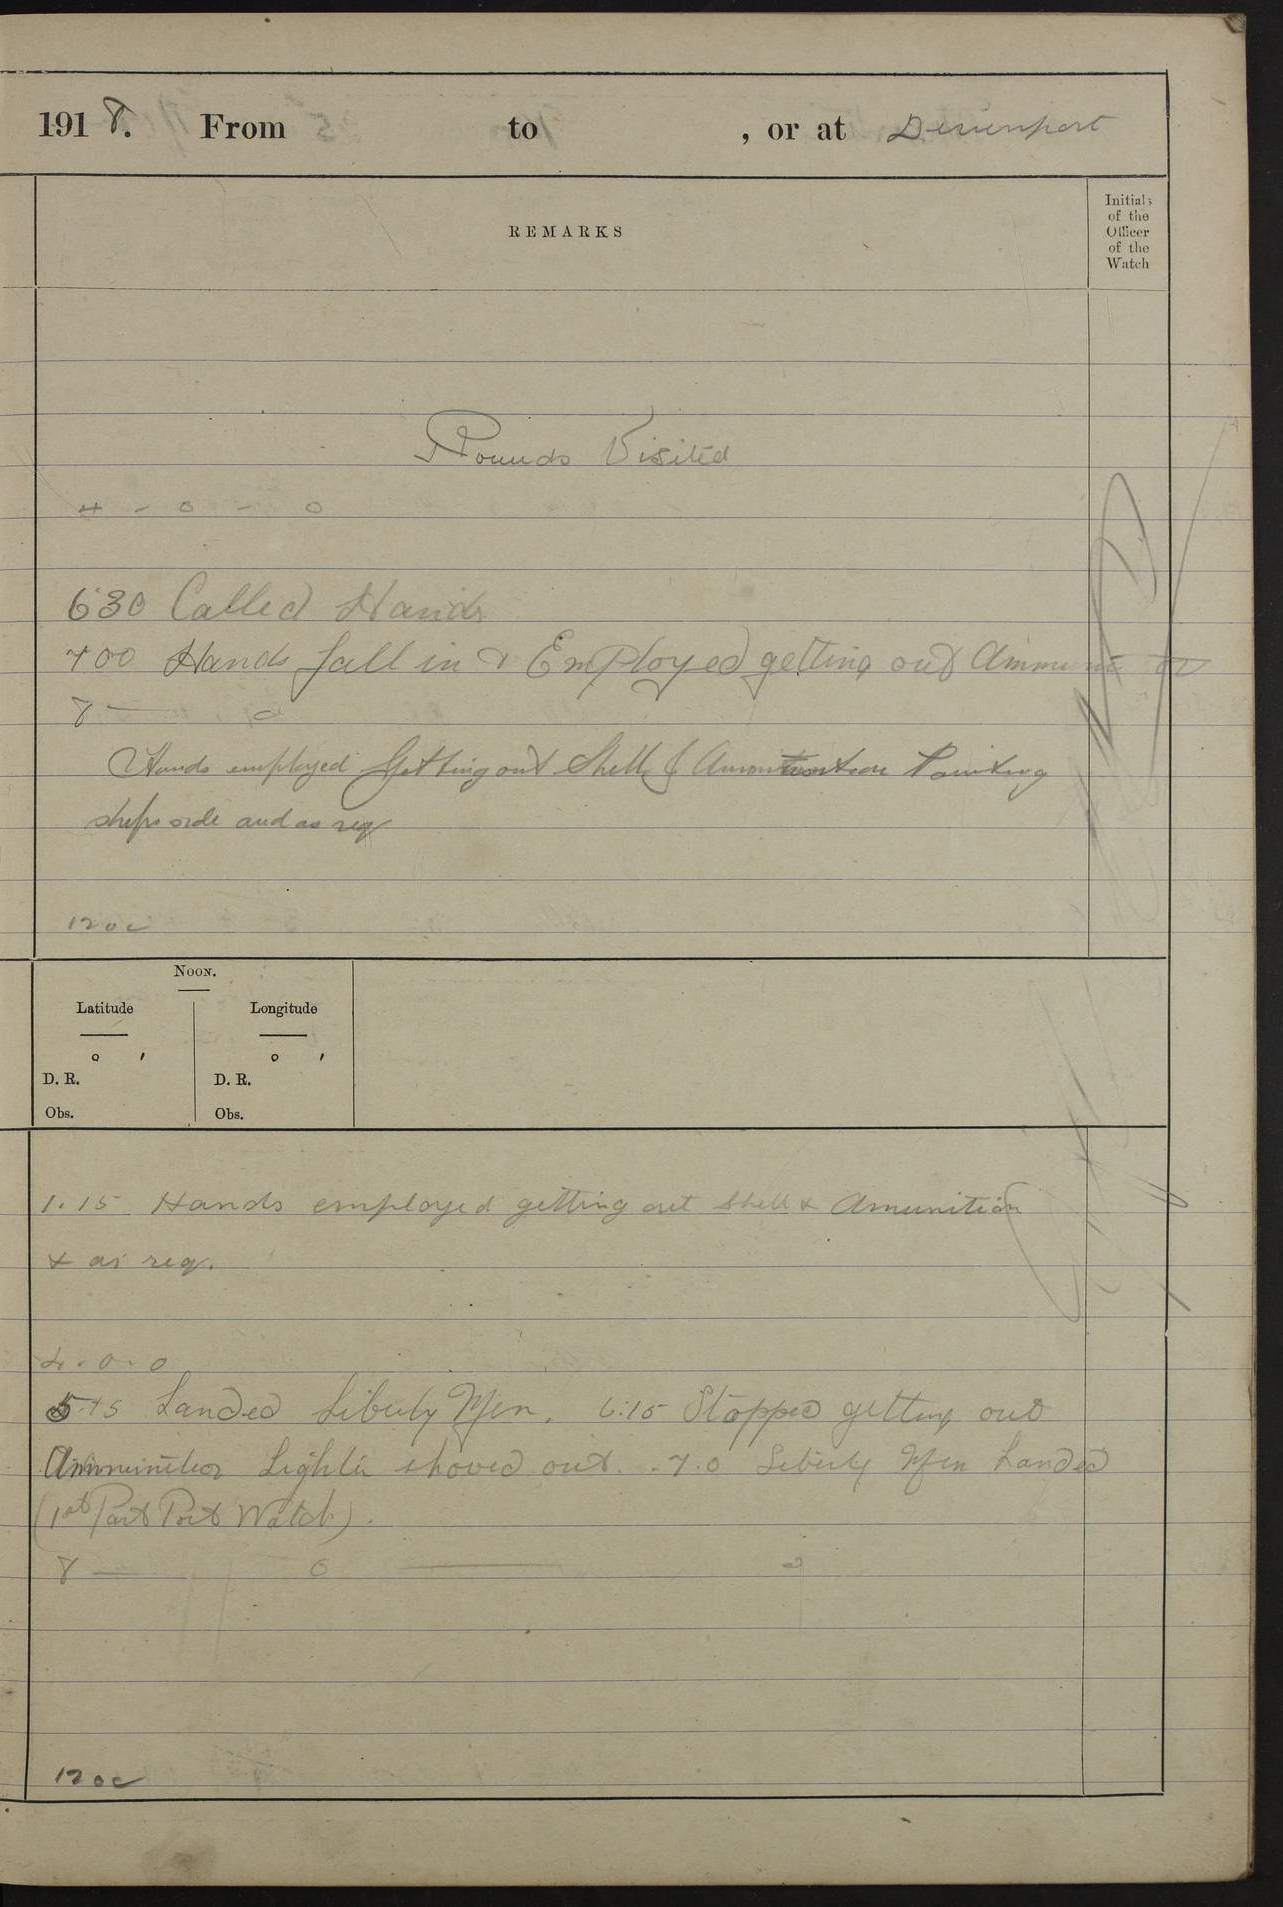 1918. From to , or at Devenport
REMARKS
Initials
of the
Officer
of the
Watch
Rounds Visited
4 - 0 - 0
630 Called Hands
700 Hands fall in & Employed getting out Ammunition
8 — 0
Hands employed Getting out Shell & Painting
ships side and as req
12 0 0
NOON.
Latitude Longitude
° ′ ° ′
D. R. D. R.
Obs. Obs.
1.15 Hands employed getting out Shell & Amunition
& as req.
4.0.0
5.45 Landed Liberty Men. 6.15 Stopped getting out
Ammunition Lighter shoved out. 7.0 Liberty Men Landed
(1st Part Port Watch).
8 — 0 —
12 0 0